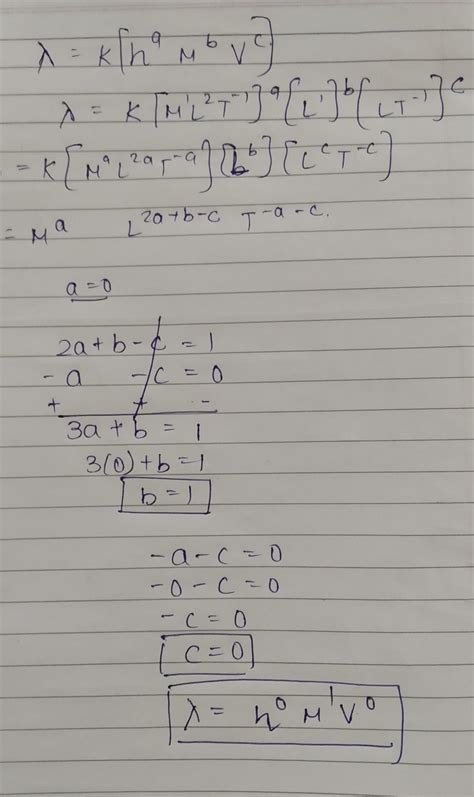 λ = K[h^a M^b V^c]
λ = K [M^1 L^2 T^-1]^a [L^1]^b [LT^-1]^c
= K[M^a L^2a T^-a] [L^b] [L^c T^-c]
= M^a L^2a+b-c T^-a-c.
a=0
2a+b-c = 1
-a -c = 0
+ + -
3a+b = 1
3(0)+b=1
b=1
-a-c=0
-0-c=0
-c=0
c=0
λ = h^0 M^1 V^0